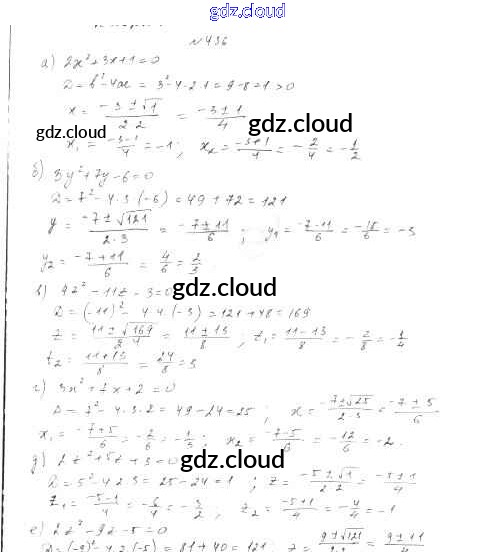 gdz.cloud
№ 436
а) 2x² + 3x + 1 = 0
D = b² - 4ac = 3² - 4·2·1 = 9 - 8 = 1 > 0
x = (-3 ± √1)/(2·2) = (-3 ± 1)/4
gdz.cloud
gdz.cloud
x₁ = (-3-1)/4 = -1; x₂ = (-3+1)/4 = -2/4 = -1/2
б) 3y² + 7y - 6 = 0
D = 7² - 4·3·(-6) = 49 + 72 = 121
y = (-7 ± √121)/(2·3) = (-7 ± 11)/6; y₁ = (-7-11)/6 = -18/6 = -3
y₂ = (-7+11)/6 = 4/6 = 2/3
gdz.cloud
в) 4z² - 11z - 3 = 0
D = (-11)² - 4·4·(-3) = 121 + 48 = 169
z = (11 ± √169)/(2·4) = (11 ± 13)/8; z₁ = (11-13)/8 = -2/8 = -1/4
z₂ = (11+13)/8 = 24/8 = 3
г) 3x² + 7x + 2 = 0
D = 7² - 4·3·2 = 49 - 24 = 25; x = (-7 ± √25)/(2·3) = (-7 ± 5)/6
x₁ = (-7+5)/6 = -2/6 = -1/3; x₂ = (-7-5)/6 = -12/6 = -2.
д) 2z² + 5z + 3 = 0
gdz.cloud
D = 5² - 4·2·3 = 25 - 24 = 1; z = (-5 ± √1)/(2·2) = (-5 ± 1)/4
z₁ = (-5-1)/4 = -6/4 = -3/2; z₂ = (-5+1)/4 = -4/4 = -1
е) 2z² - 9z - 5 = 0
gdz.cloud
D = (-9)² - 4·2·(-5) = 81 + 40 = 121; z = (9 ± √121) = (9 ± 11)/4